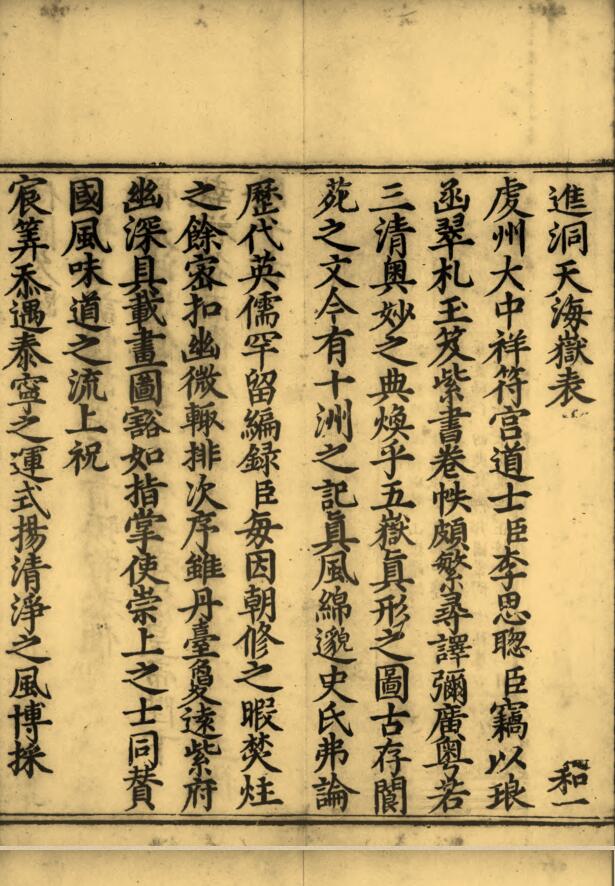 進洞天海嶽表
和一
虔州大中祥符宫道士臣李思聦臣竊以琅
函翠札玉芨紫書卷帙頗繁尋譯彌廣粵若
三清奧妙之典煥乎五嶽眞形之圖古存閬
苑之文今有十洲之記眞風綿邈史氏弗論
歷代英儒罕留編録臣每因朝修之暇焚炷
之餘宻扣幽微輙排次序雖丹臺敻逺紫府
幽深具載畫圖豁如指掌使崇上之士同賛
國風味道之流上祝
宸筭忝遇泰寧之運式揚清淨之風博採